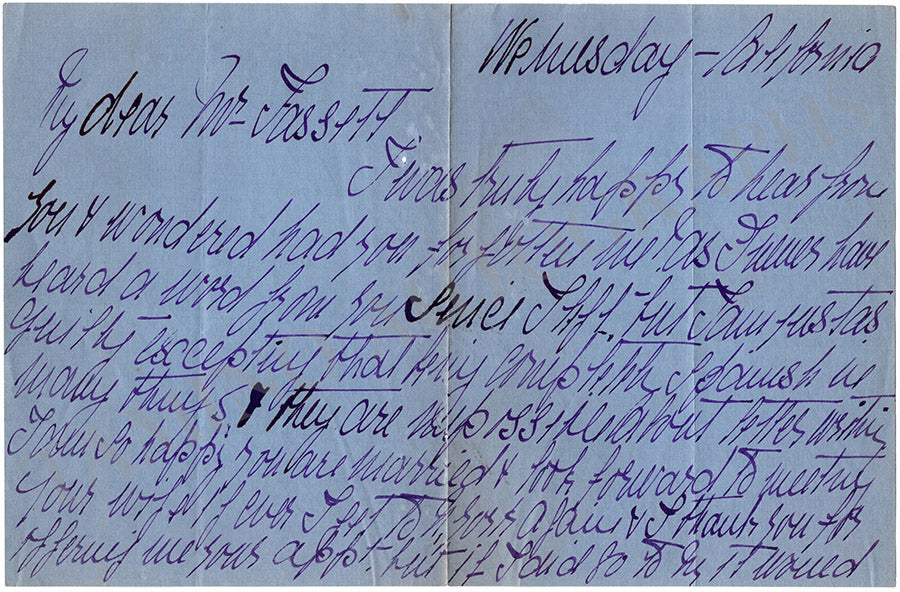 Wednesday - California
My dear Mr Fassett
I was truly happy to hear from
you & wondered had you forgotten me as I never have
heard a word from you since I left, but I am just as
guilty excepting that being completely Spanish in
many things & they are impossible about letter writing
I am so happy you are married & look forward to meeting
your wife if ever I get to again & I thank you for
offering me your appt. but if I did go to N.Y it would